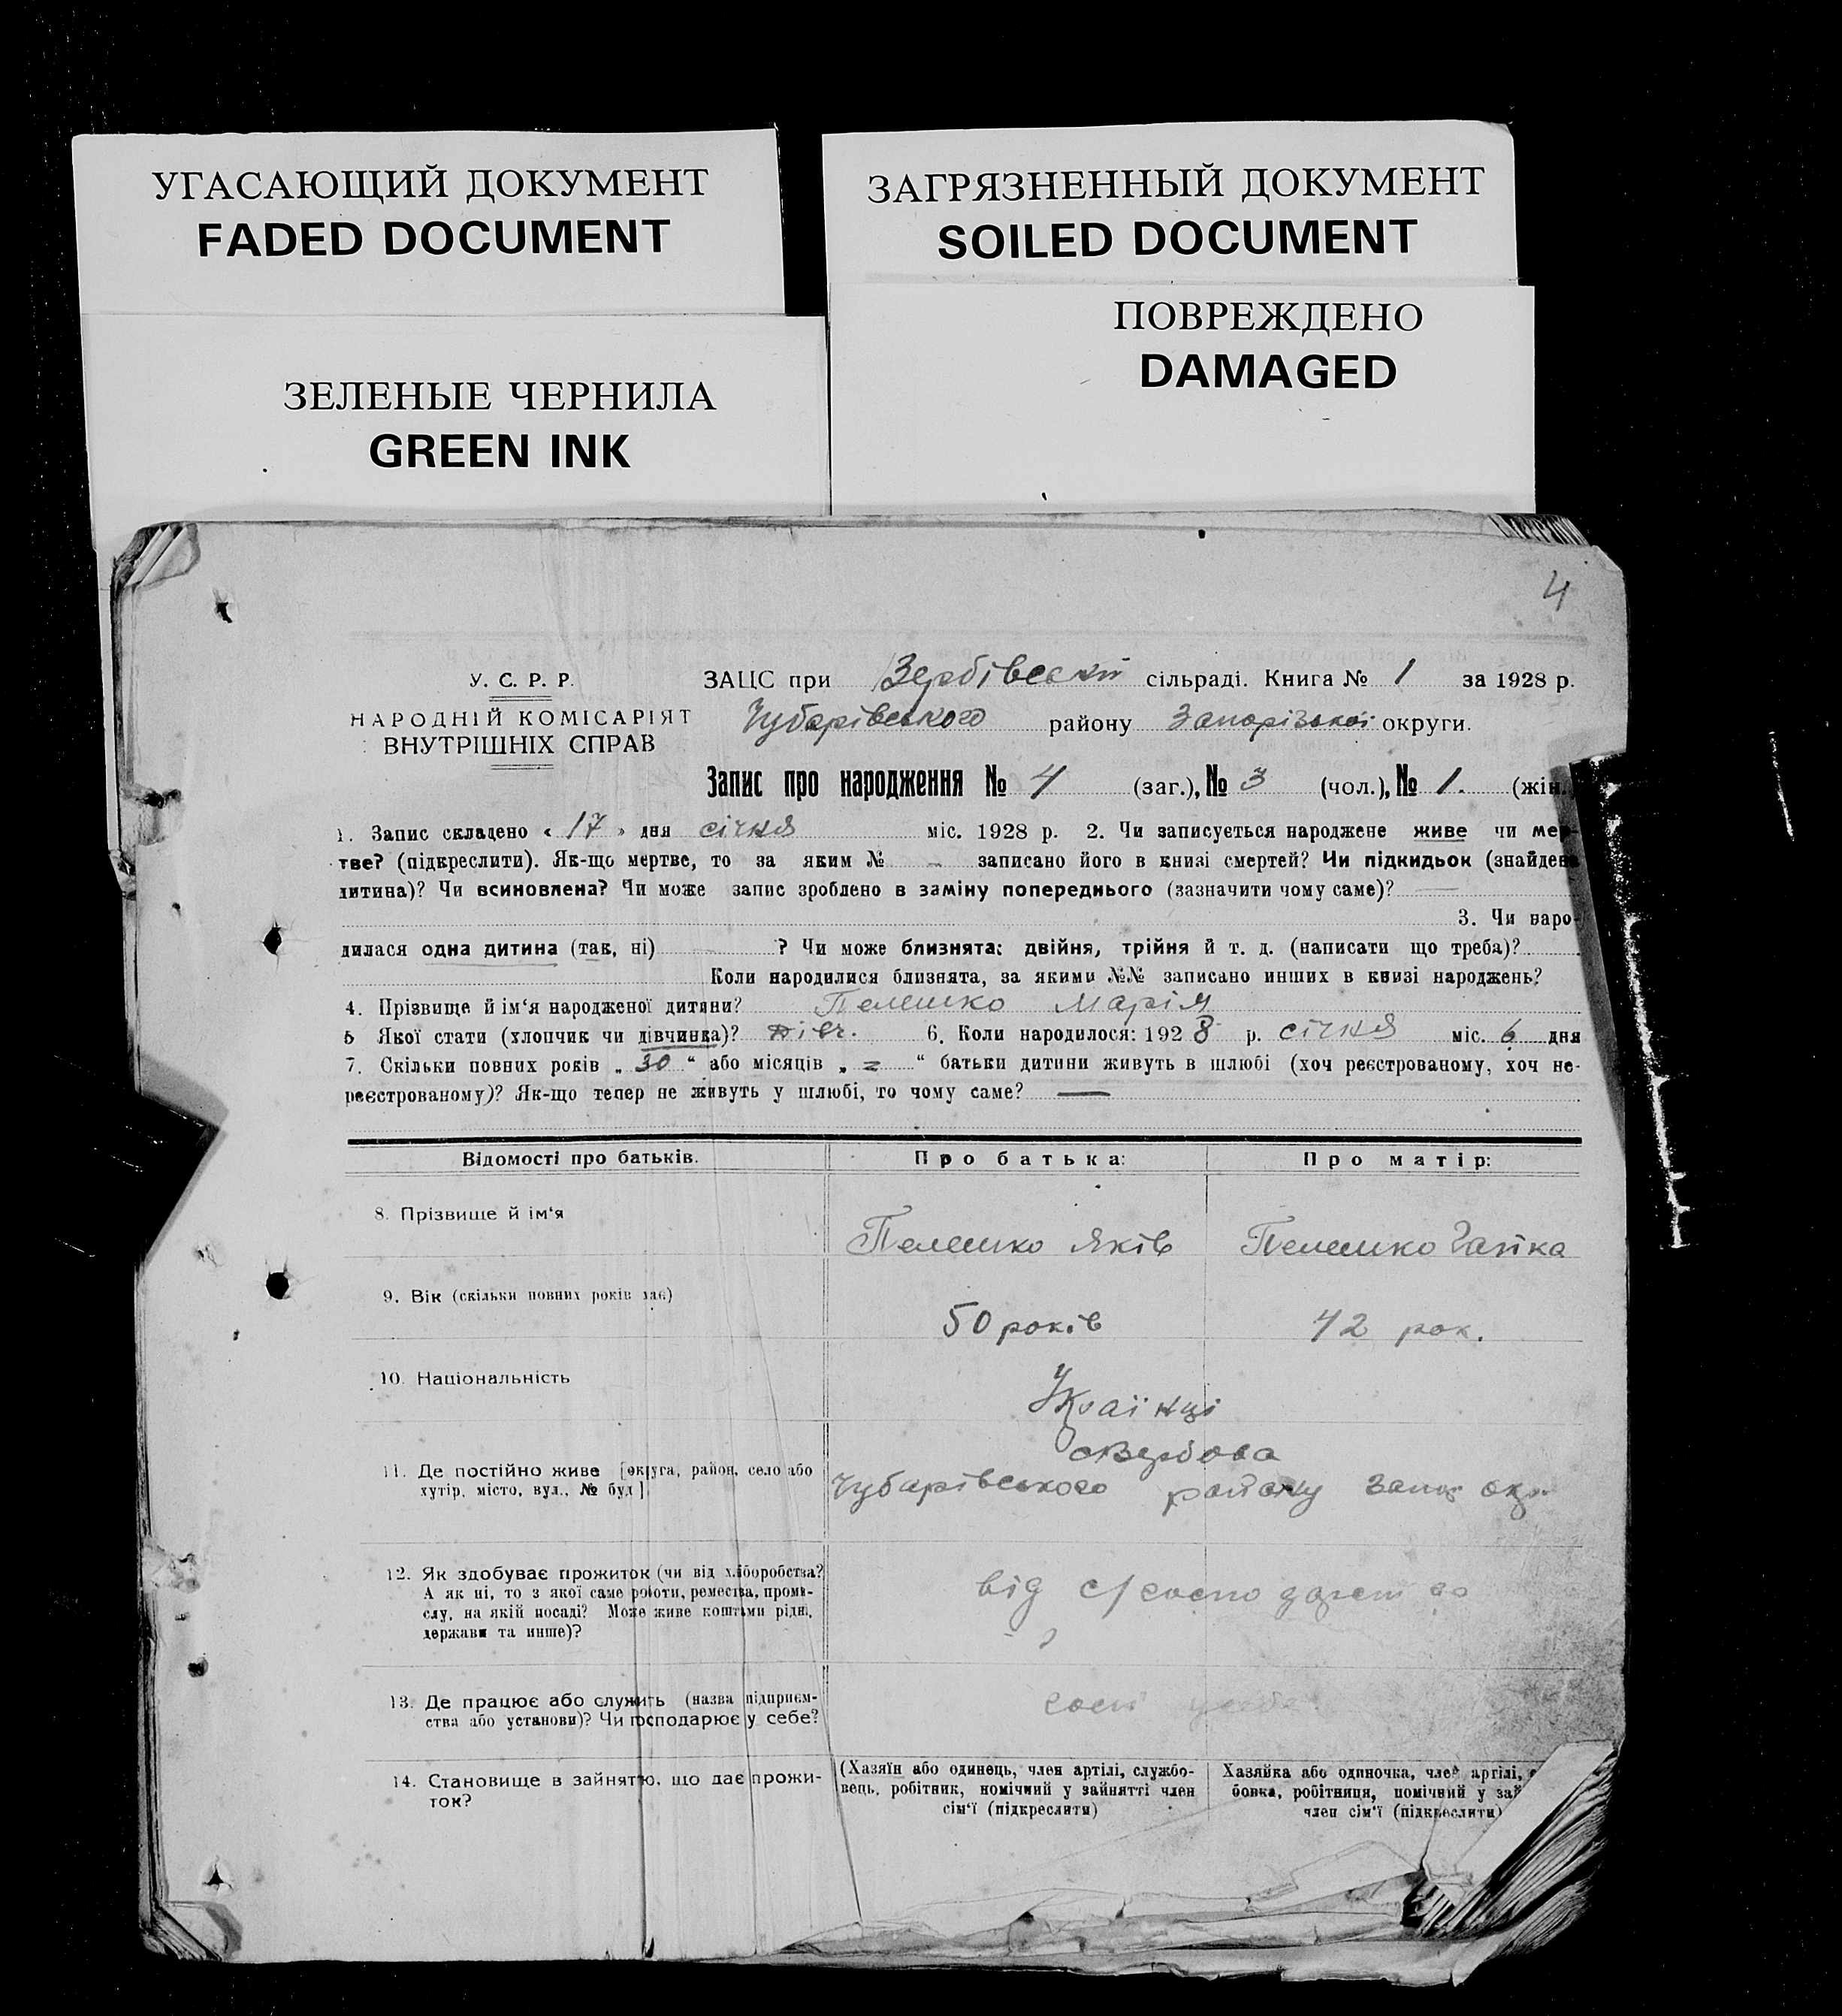 УГАСАЮЩИЙ ДОКУМЕНТ
FADED DOCUMENT
ЗАГРЯЗНЕННЫЙ ДОКУМЕНТ
SOILED DOCUMENT
ПОВРЕЖДЕНО
DAMAGED
ЗЕЛЕНЫЕ ЧЕРНИЛА
GREEN INK
4
У. С. Р. Р.
НАРОДНІЙ КОМІСАРІЯТ
ВНУТРІШНІХ СПРАВ
ЗАЦС при Вербівській сільраді. Книга № 1 за 1928 р.
Чубарівського району Запорізької округи.
Запис про народження № 4 (заг.), № 3 (чол.), № 1. (жін.)
1. Запис складено « 17 » дня січня міс. 1928 р. 2. Чи записується народжене живе чи мер-
тве? (підкреслити). Як-що мертве, то за яким № – записано його в книзі смертей? Чи підкидьок (знайдена
дитина)? Чи всиновлена? Чи може запис зроблено в заміну попереднього (зазначити чому саме)? —
3. Чи наро-
дилася одна дитина (так, ні) ? Чи може близнята: двійня, трійня й т. д. (написати що треба)?
Коли народилися близнята, за якими №№ записано инших в книзі народжень?
4. Прізвище й ім‘я народженої дитини? Пелешко Марія
5 Якої стати (хлопчик чи дівчинка)? дівч. 6. Коли народилося: 1928 р. січня міс. 6 дня
7. Скільки повних років „ 30 “ або місяців „ = “ батьки дитини живуть в шлюбі (хоч реєстрованому, хоч не-
реєстрованому)? Як-що тепер не живуть у шлюбі, то чому саме? —
Відомості про батьків. Про батька: Про матір:
8. Прізвище й ім‘я Пелешко Яків Пелешко Гапка
9. Вік (скільки повних років має) 50 років 42 рок.
10. Національність Українці
с Вербова
11. Де постійно живе [округа, район, село або
хутір, місто, вул., № буд] Чубарівського району Запор окр.
12. Як здобуває прожиток (чи від хліборобства?
А як ні, то з якої саме роботи, ремества, проми-
слу, на якій посаді? Може живе коштами рідні,
держави та инше)?
від с/господарства
13. Де працює або служить (назва підприєм-
ства або установи)? Чи господарює у себе?
госп у себе
14. Становище в зайняттю, що дає прожи-
ток?
(Хазяїн або одинець, член артілі, службо-
вець, робітник, помічний у зайнятті член
сім‘ї (підкреслити)
Хазяйка або одиночка, член артілі,
бовка, робітниця, помічний у зай
член сім‘ї (підкреслити)